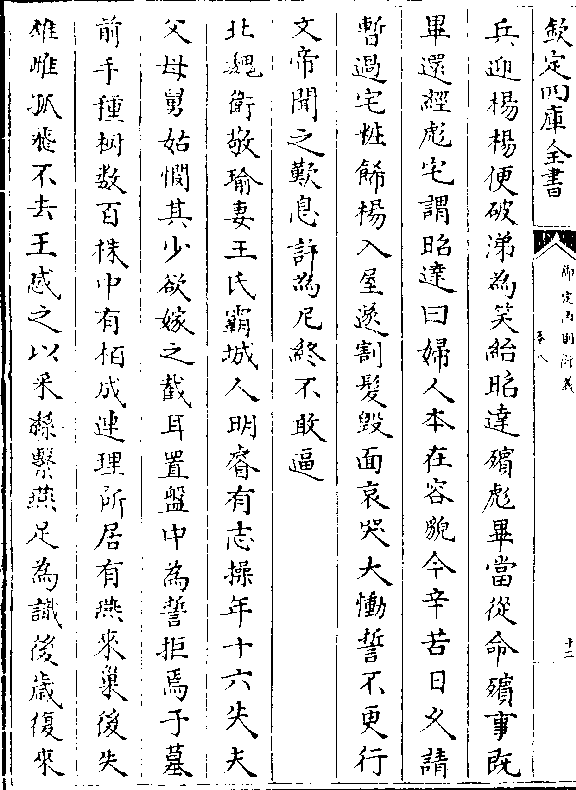 欽定四庫全書
御定內則衍義
卷八
十二
兵迎楊楊便破涕為笑紿昭達殯彪畢當從命殯事既
畢還經彪宅謂昭達曰婦人本在容貌今辛苦日久請
暫過宅粧飾楊入屋遂割髮毀面哀哭大慟誓不更行
文帝聞之歎息許為尼終不敢逼
北魏衛敬瑜妻王氏霸城人明睿有志操年十六失夫
父母舅姑憫其少欲嫁之截耳置盤中為誓拒焉于墓
前手種樹數百株中有栢成連理所居有燕來巢後失
雄雌孤飛不去王感之以采繇繫燕足為識後歲復來